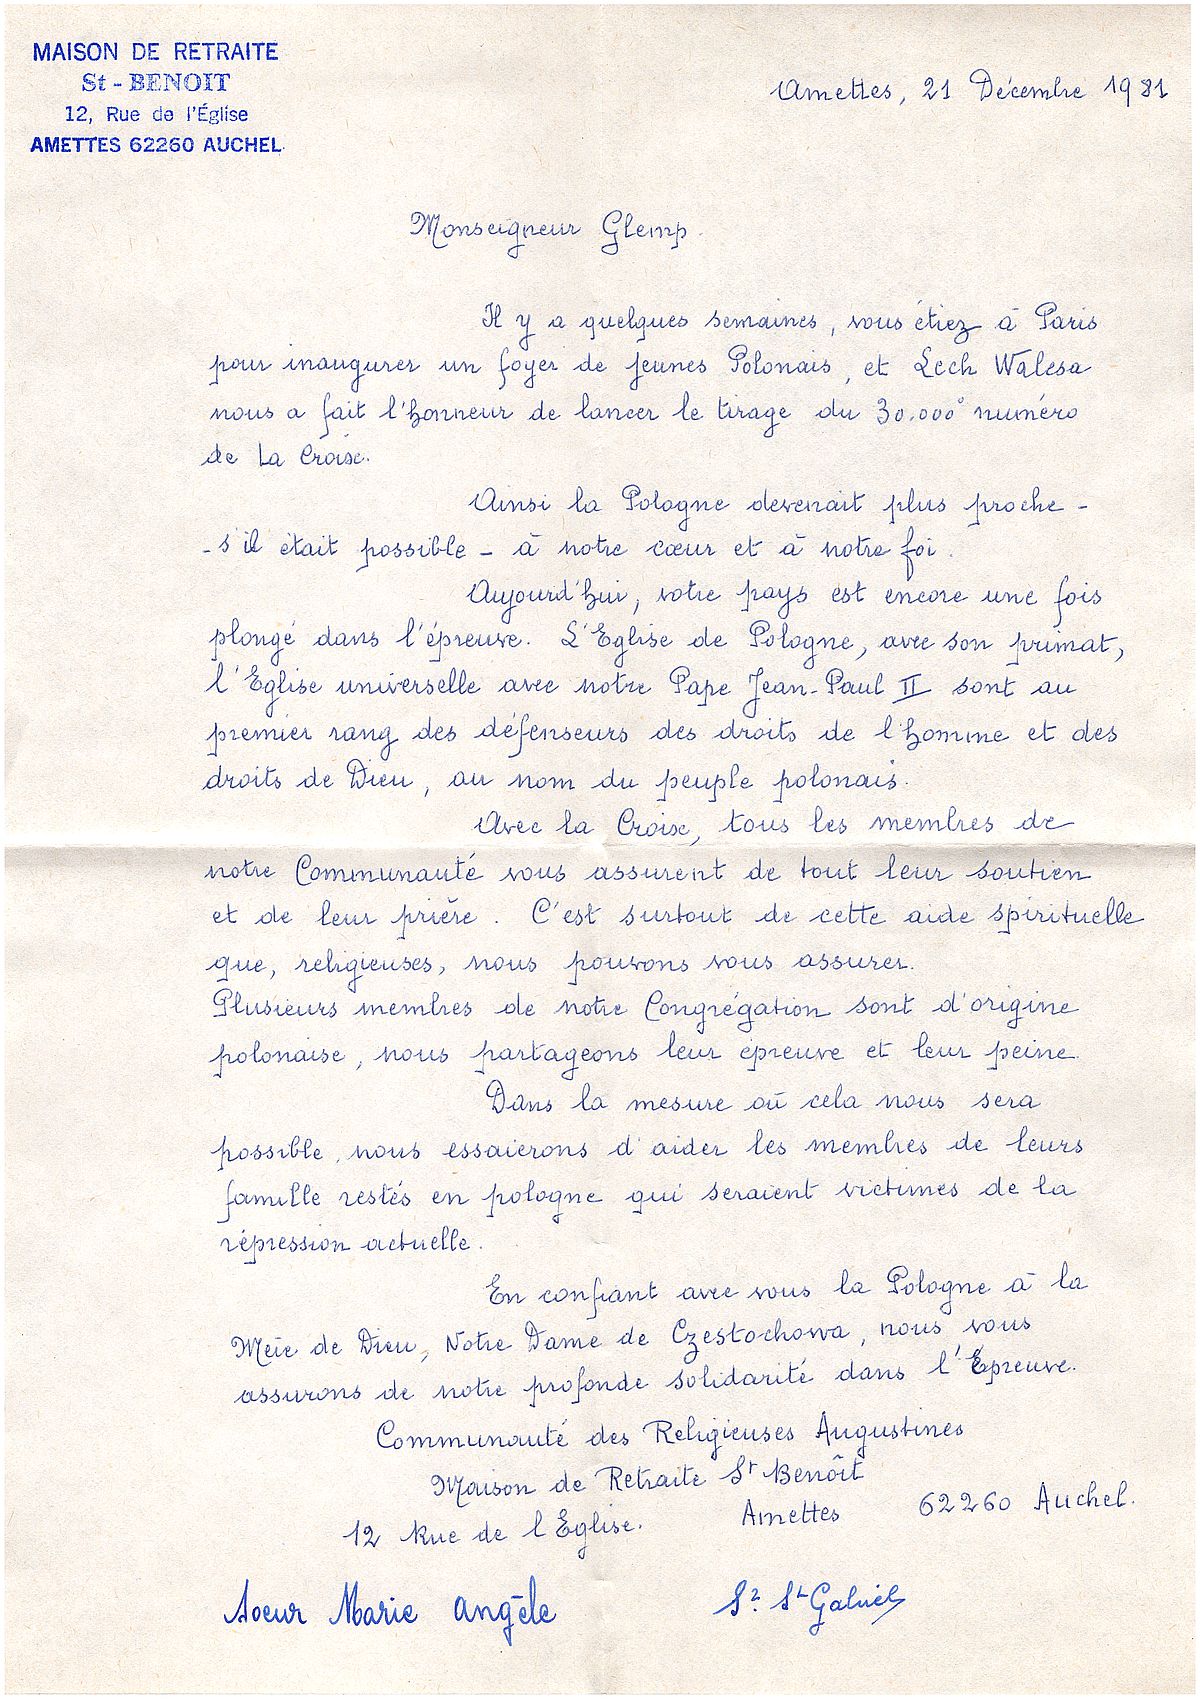 MAISON DE RETRAITE
St - BENOIT
12, Rue de l'Église
AMETTES 62260 AUCHEL
Amettes, 21 Décembre 1981
Monseigneur Glemp.
Il y a quelques semaines, vous étiez à Paris
pour inaugurer un foyer de jeunes Polonais, et Lech Walesa
nous a fait l'honneur de lancer le tirage du 30.000° numéro
de La Croix.
Ainsi la Pologne devenait plus proche -
- s'il était possible - à notre cœur et à notre foi.
Aujourd'hui, votre pays est encore une fois
plongé dans l'épreuve. L'Eglise de Pologne, avec son primat,
l'Eglise universelle avec notre Pape Jean-Paul II sont au
premier rang des défenseurs des droits de l'homme et des
droits de Dieu, au nom du peuple polonais.
Avec la Croix, tous les membres de
notre Communauté vous assurent de tout leur soutien
et de leur prière. C'est surtout de cette aide spirituelle
que, religieuses, nous pouvons vous assurer.
Plusieurs membres de notre Congrégation sont d'origine
polonaise, nous partageons leur épreuve et leur peine.
Dans la mesure où cela nous sera
possible, nous essaierons d'aider les membres de leurs
famille restés en pologne qui seraient victimes de la
répression actuelle.
En confiant avec vous la Pologne à la
Mère de Dieu, Notre Dame de Czestochowa, nous vous
assurons de notre profonde solidarité dans l'Épreuve.
Communauté des Religieuses Augustines
Maison de Retraite St Benoît
12 Rue de l'Eglise. Amettes 62260 Auchel.
Soeur Marie Angèle Sr. St Gabriel